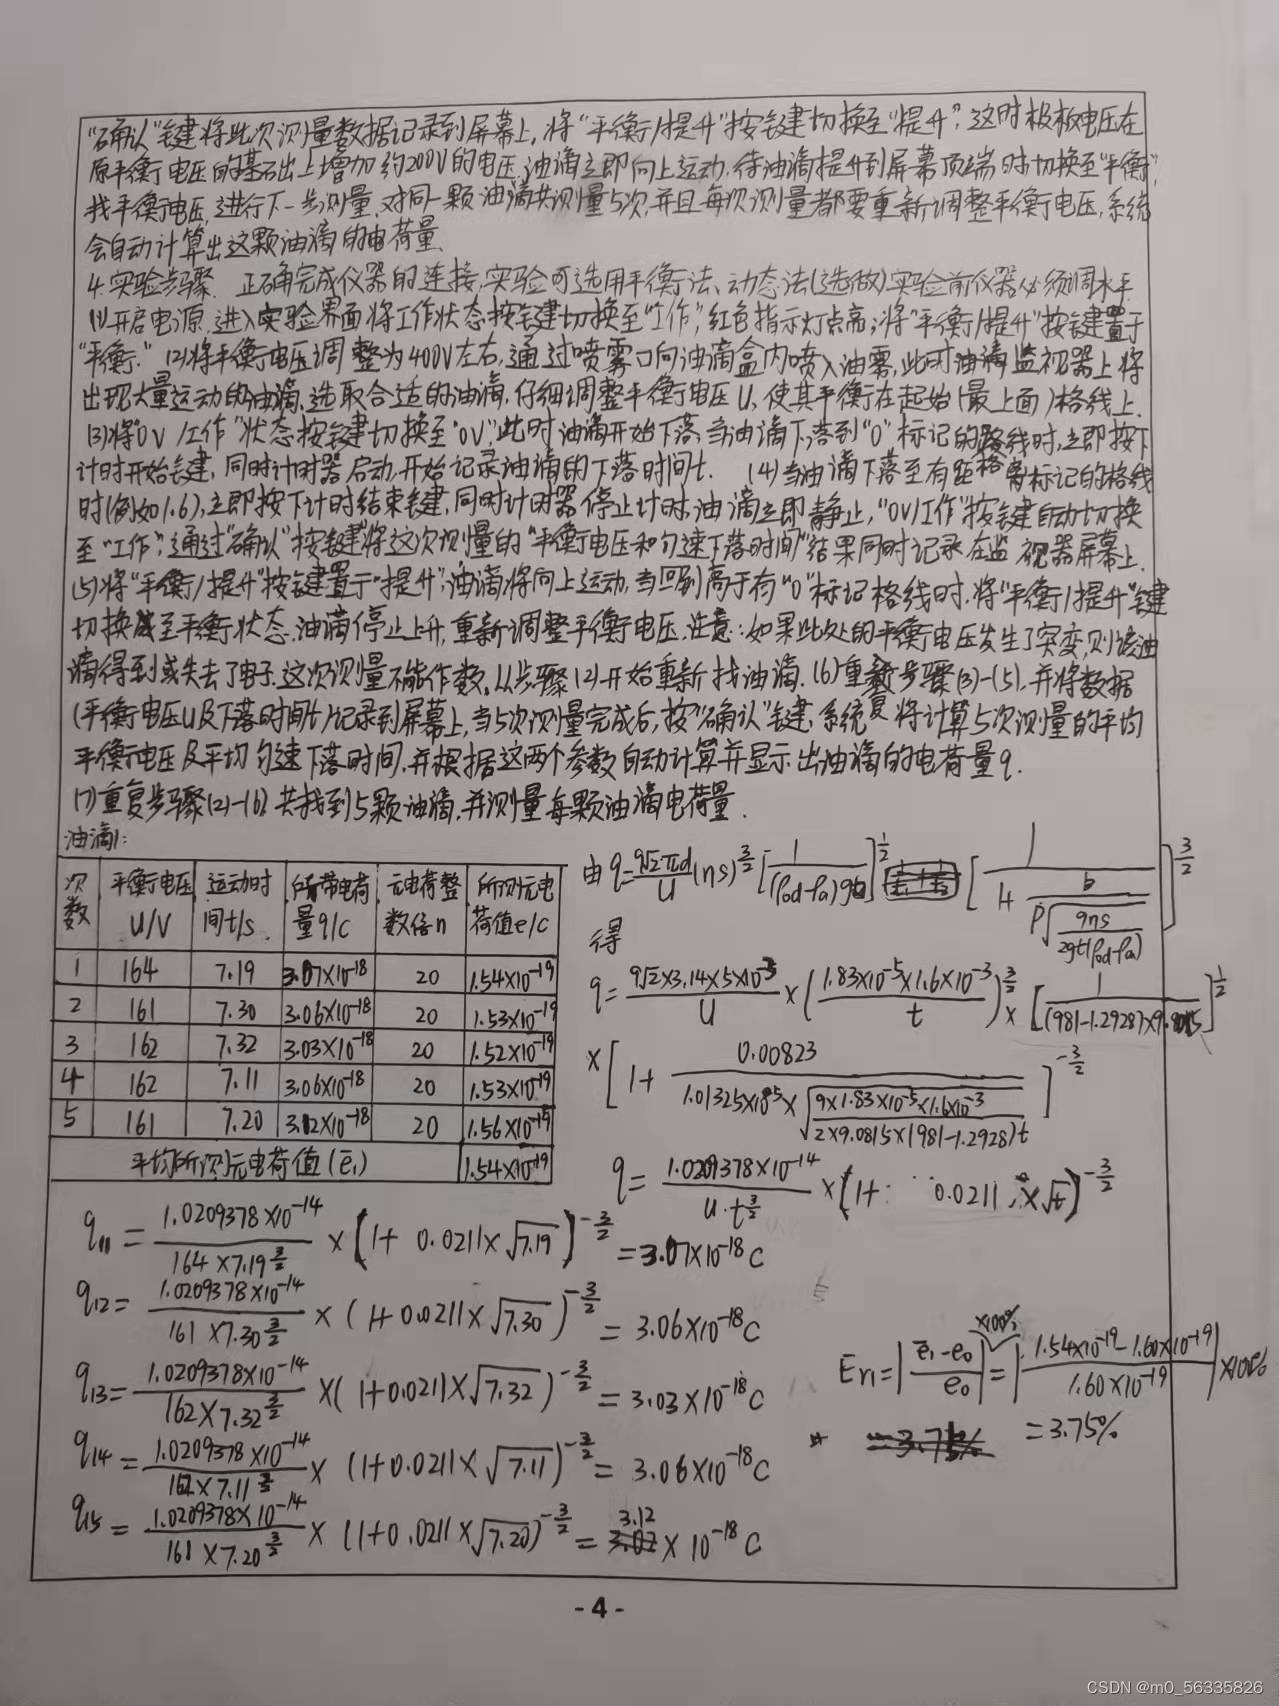 "确认"键将此次测量数据记录到屏幕上,将"平衡/提升"按键切换至"提升",这时极板电压在
原平衡电压的基础上增加约200V的电压,油滴立即向上运动,待油滴提升到屏幕顶端时切换至"平衡",
找平衡电压,进行下一步测量,对同一颗油滴共测量5次,并且每次测量都要重新调整平衡电压,系统
会自动计算出这颗油滴的电荷量.
4.实验步骤. 正确完成仪器的连接,实验可选用平衡法、动态法(选做).实验前仪器必须调水平
(1)开启电源,进入实验界面将工作状态按键切换至"工作",红色指示灯点亮;将"平衡/提升"按键置于
"平衡." (2)将平衡电压调整为400V左右,通过喷雾口向油滴盒内喷入油雾,此时油滴监视器上将
出现大量运动的油滴,选取合适的油滴,仔细调整平衡电压U,使其平衡在起始(最上面)格线上.
(3)将"0V/工作"状态按键切换至"0V",此时油滴开始下落,当油滴下落到"0"标记的格线时,立即按下
计时开始键,同时计时器启动,开始记录油滴的下落时间t. (4)当油滴下落至有距离标记的格线
时(例如1.6),立即按下计时结束键,同时计时器停止计时,油滴立即静止,"0V/工作"按键自动切换
至"工作",通过"确认"按键将这次测量的"平衡电压和匀速下落时间"结果同时记录在监视器屏幕上.
(5)将"平衡/提升"按键置于"提升",油滴将向上运动,当回到高于有"0"标记格线时,将"平衡/提升"键
切换至平衡状态,油滴停止上升,重新调整平衡电压.注意:如果此处的平衡电压发生了突变,则该油
滴得到或失去了电子.这次测量不能作数,从步骤(2)开始重新找油滴.(6)重复步骤(3)-(5),并将数据
(平衡电压U及下落时间t)记录到屏幕上,当5次测量完成后,按"确认"键,系统将计算5次测量的平均
平衡电压及平均匀速下落时间,并根据这两个参数自动计算并显示出油滴的电荷量q.
(7)重复步骤(2)-(6)共找到5颗油滴,并测量每颗油滴电荷量.
油滴1:
次数 平衡电压U/V 运动时间t/s 所带电荷量q/C 元电荷整数倍n 所测元电荷值e/C
1 164 7.19 3.07×10⁻¹⁸ 20 1.54×10⁻¹⁹
2 161 7.30 3.06×10⁻¹⁸ 20 1.53×10⁻¹⁹
3 162 7.32 3.03×10⁻¹⁸ 20 1.52×10⁻¹⁹
4 162 7.11 3.06×10⁻¹⁸ 20 1.53×10⁻¹⁹
5 161 7.20 3.12×10⁻¹⁸ 20 1.56×10⁻¹⁹
平均所测元电荷值(ē₁) 1.54×10⁻¹⁹
由 q=9√2πd/U (ηs)^(3/2) [1/((ρod-ρa)g)]^(1/2) [1/(1+b/(P√(9ηs/(2gt(ρod-ρa)))))]^(3/2)
得
q=9√2×3.14×5×10⁻³/U × (1.83×10⁻⁵×1.6×10⁻³/t)^(3/2) × [1/((981-1.2928)×9.8015)]^(1/2)
×[1+0.00823/(1.01325×10⁵×√(9×1.83×10⁻⁵×1.6×10⁻³/(2×9.0815×(981-1.2928)t)))]^(-3/2)
q=1.0209378×10⁻¹⁴/(U·t^(3/2)) ×(1+0.0211×√t)^(-3/2)
q₁₁=1.0209378×10⁻¹⁴/(164×7.19^(3/2)) ×(1+0.0211×√7.19)^(-3/2)=3.07×10⁻¹⁸C
q₁₂=1.0209378×10⁻¹⁴/(161×7.30^(3/2)) ×(1+0.0211×√7.30)^(-3/2)=3.06×10⁻¹⁸C
q₁₃=1.0209378×10⁻¹⁴/(162×7.32^(3/2)) ×(1+0.0211×√7.32)^(-3/2)=3.03×10⁻¹⁸C
q₁₄=1.0209378×10⁻¹⁴/(162×7.11^(3/2)) ×(1+0.0211×√7.11)^(-3/2)=3.06×10⁻¹⁸C
q₁₅=1.0209378×10⁻¹⁴/(161×7.20^(3/2)) ×(1+0.0211×√7.20)^(-3/2)=3.12×10⁻¹⁸C
Er₁=|(ē₁-e₀)/e₀|×100%=|(1.54×10⁻¹⁹-1.60×10⁻¹⁹)/(1.60×10⁻¹⁹)|×100%
=3.75%
-4-
CSDN @m0_56335826